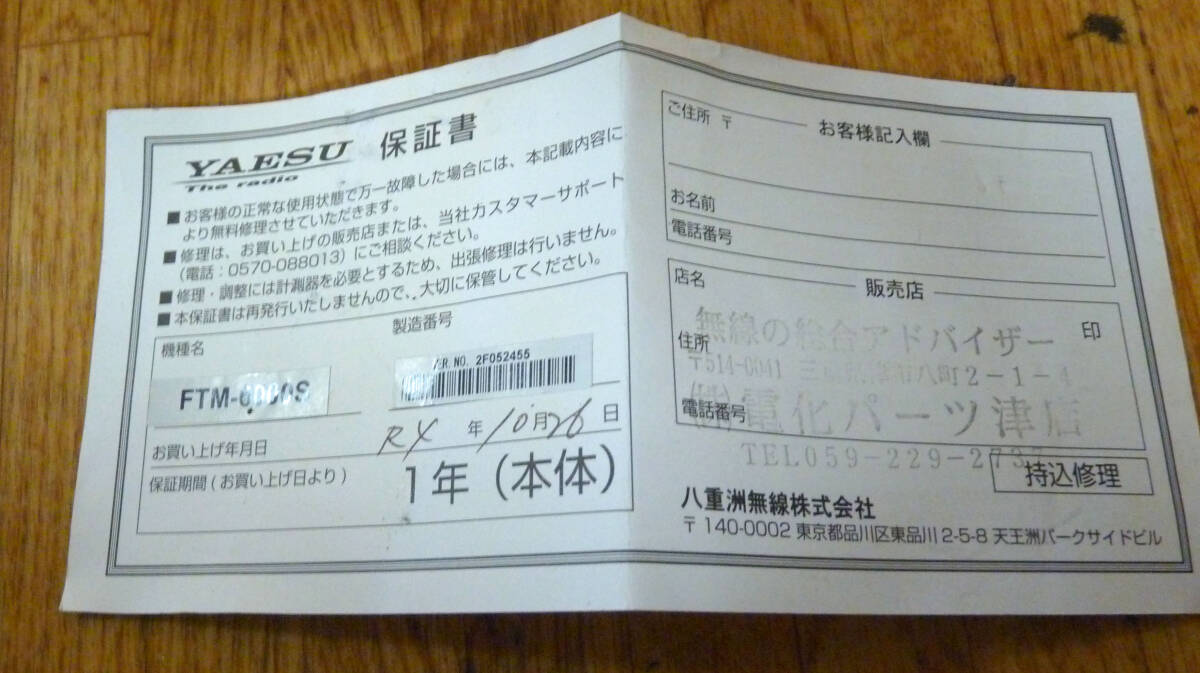 YAESU 保証書
The radio
■お客様の正常な使用状態で万一故障した場合には、本記載内容に
より無料修理させていただきます。
■修理は、お買い上げの販売店または、当社カスタマーサポート
(電話：0570-088013) にご相談ください。
■修理・調整には計測器を必要とするため、出張修理は行いません。
■本保証書は再発行いたしませんので、大切に保管してください。
機種名
FTM-6000S
製造番号
SER.NO. 2F052455
お買い上げ年月日
R4 年 10月26日
保証期間 (お買い上げ日より)
1年 (本体)
お客様記入欄
ご住所 〒
お名前
電話番号
販売店
店名
印
無線の総合アドバイザー
住所
〒514-0041 三重県津市八町2-1-4
電話番号
㈱電化パーツ津店
TEL059-229-2737
持込修理
八重洲無線株式会社
〒 140-0002 東京都品川区東品川 2-5-8 天王洲パークサイドビル